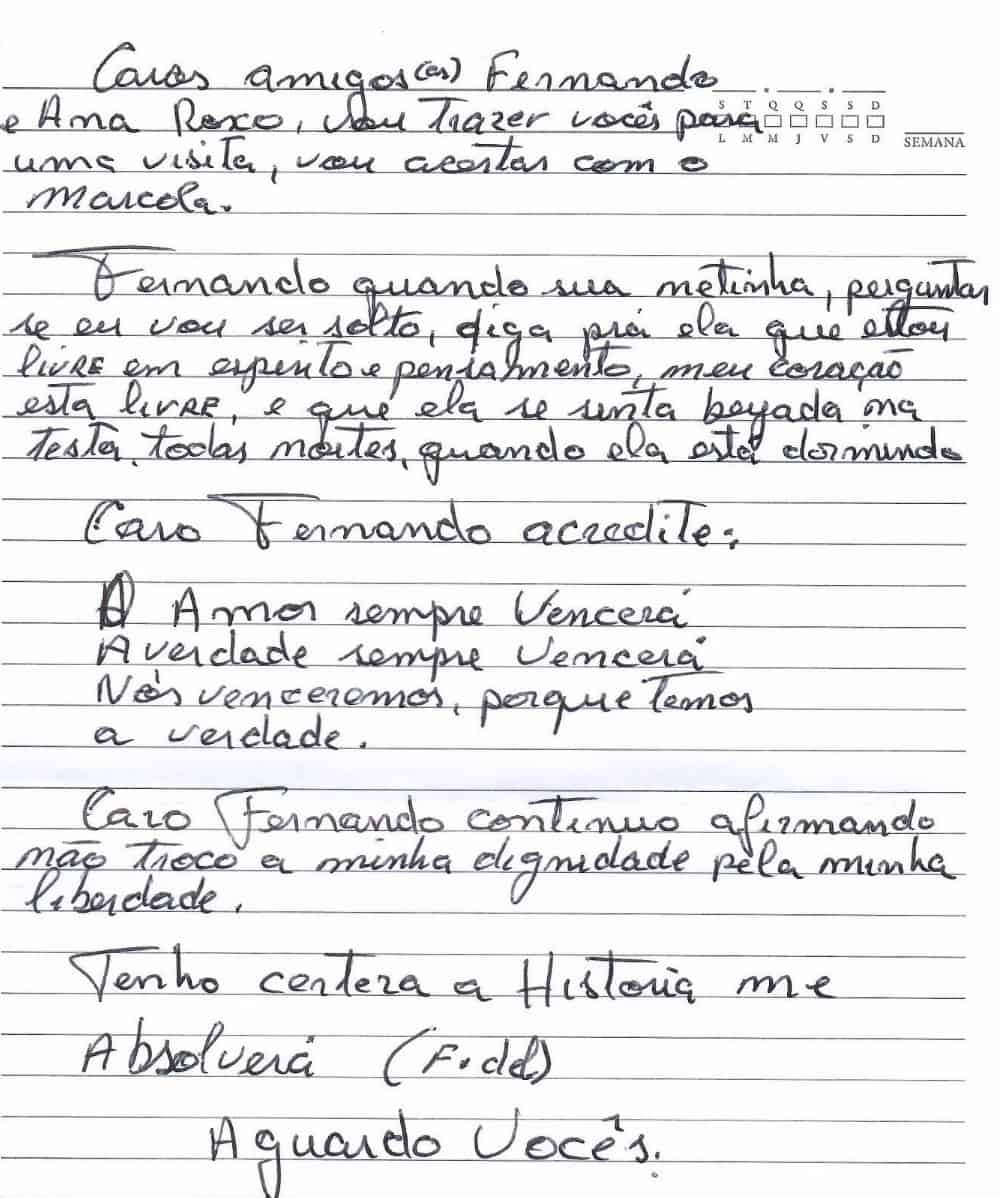 Caros amigos(as) Fernando
S T Q Q S S D
e Ana Roxo, vou Trazer vocês para
L M M J V S D
SEMANA
uma visita, vou acertar com o
Marcola.
Fernando quando sua netinha, perguntar
se eu vou ser solto, diga prá ela que estou
livre em espirito e pensalmento, meu coração
esta livre, e que ela se sinta beyada na
Testa, todas noites, quando ela está dormindo
Caro Fernando acredite:
O Amor sempre Vencerá
A verdade sempre Vencerá
Nós venceremos, porque Temos
a verdade.
Caro Fernando continuo afirmando
não troco a minha dignidade pela minha
liberdade.
Tenho certeza a Historia me
Absolverá (Fidel)
Aguardo Vocês.